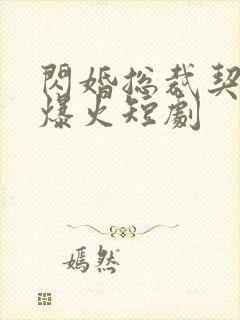 閃婚总裁契
爆火短劇
嫣然